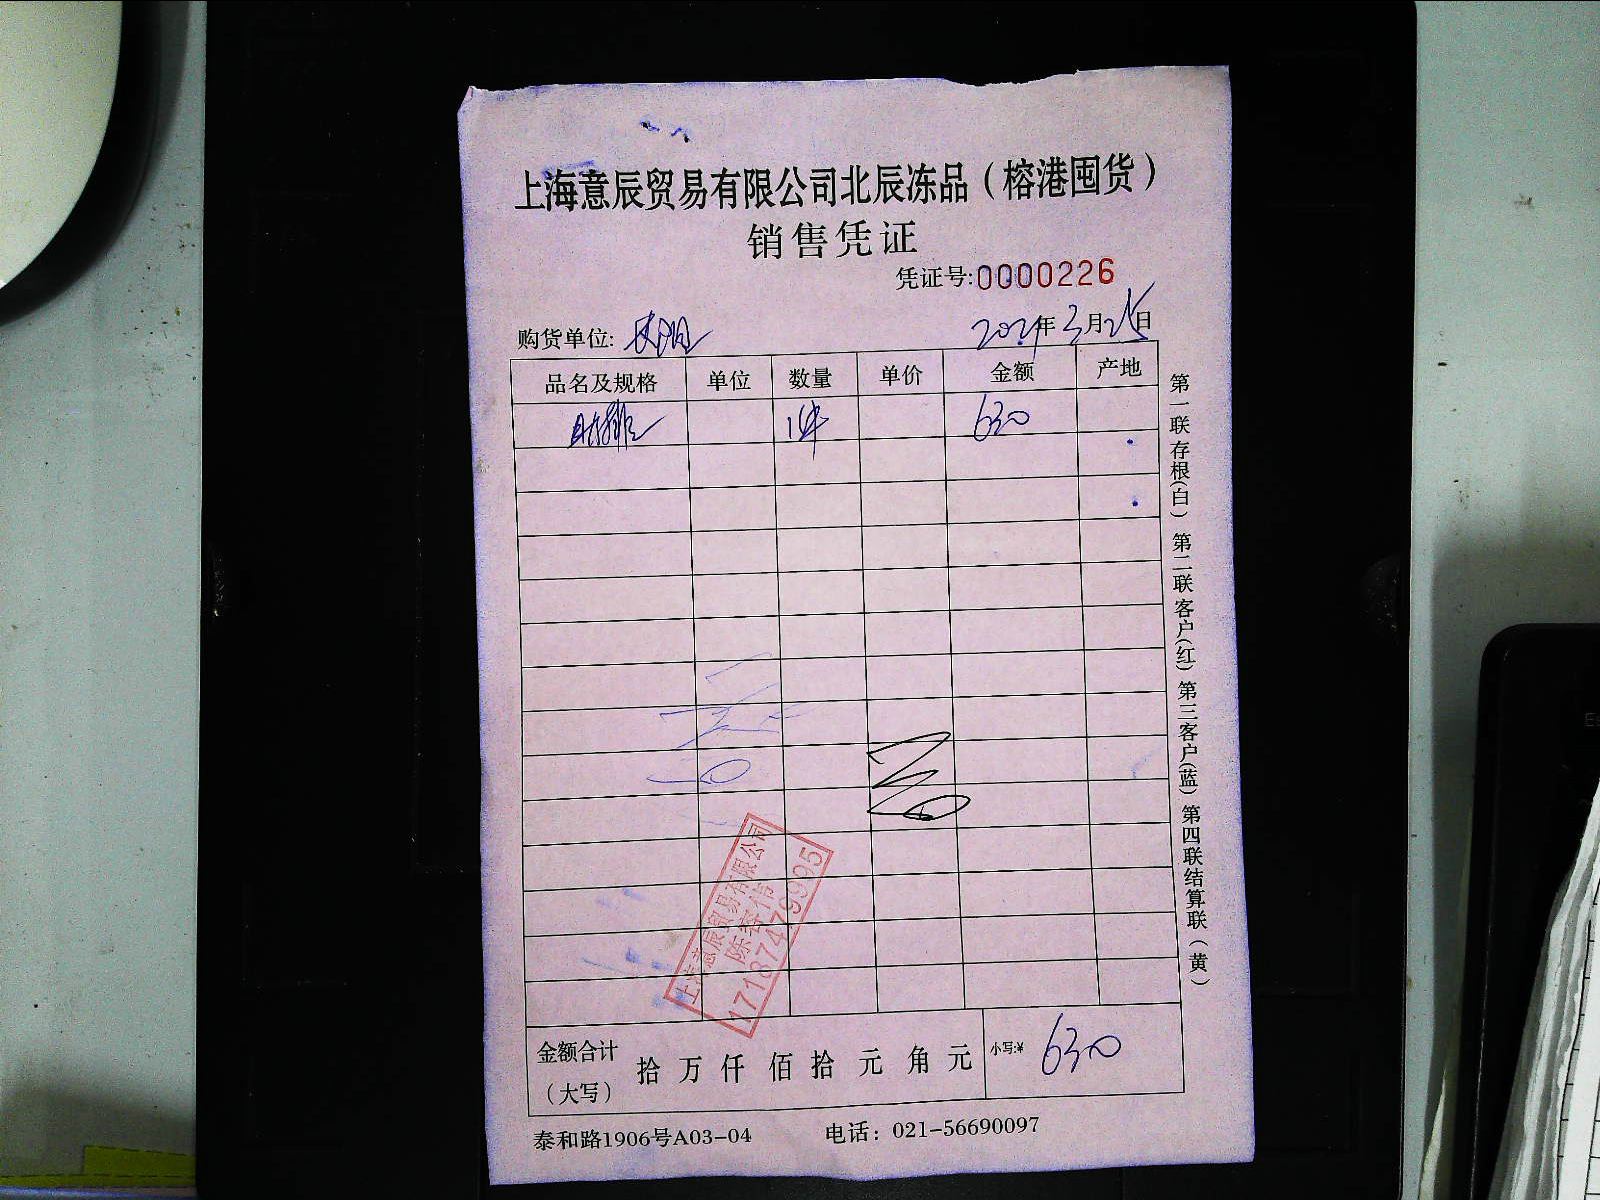 上海意辰贸易有限公司北辰冻品（榕港囤货）
销售凭证
凭证号:0000226
购货单位:
年3月25日
品名及规格 单位 数量 单价 金额 产地
1件 630
第一联存根(白) 第二联客户(红) 第三客户(蓝) 第四联结算联(黄)
上海意辰贸易有限公司
17187479995
金额合计
（大写）
拾万仟佰拾元角元
小写:¥ 630
泰和路1906号A03-04 电话：021-56690097